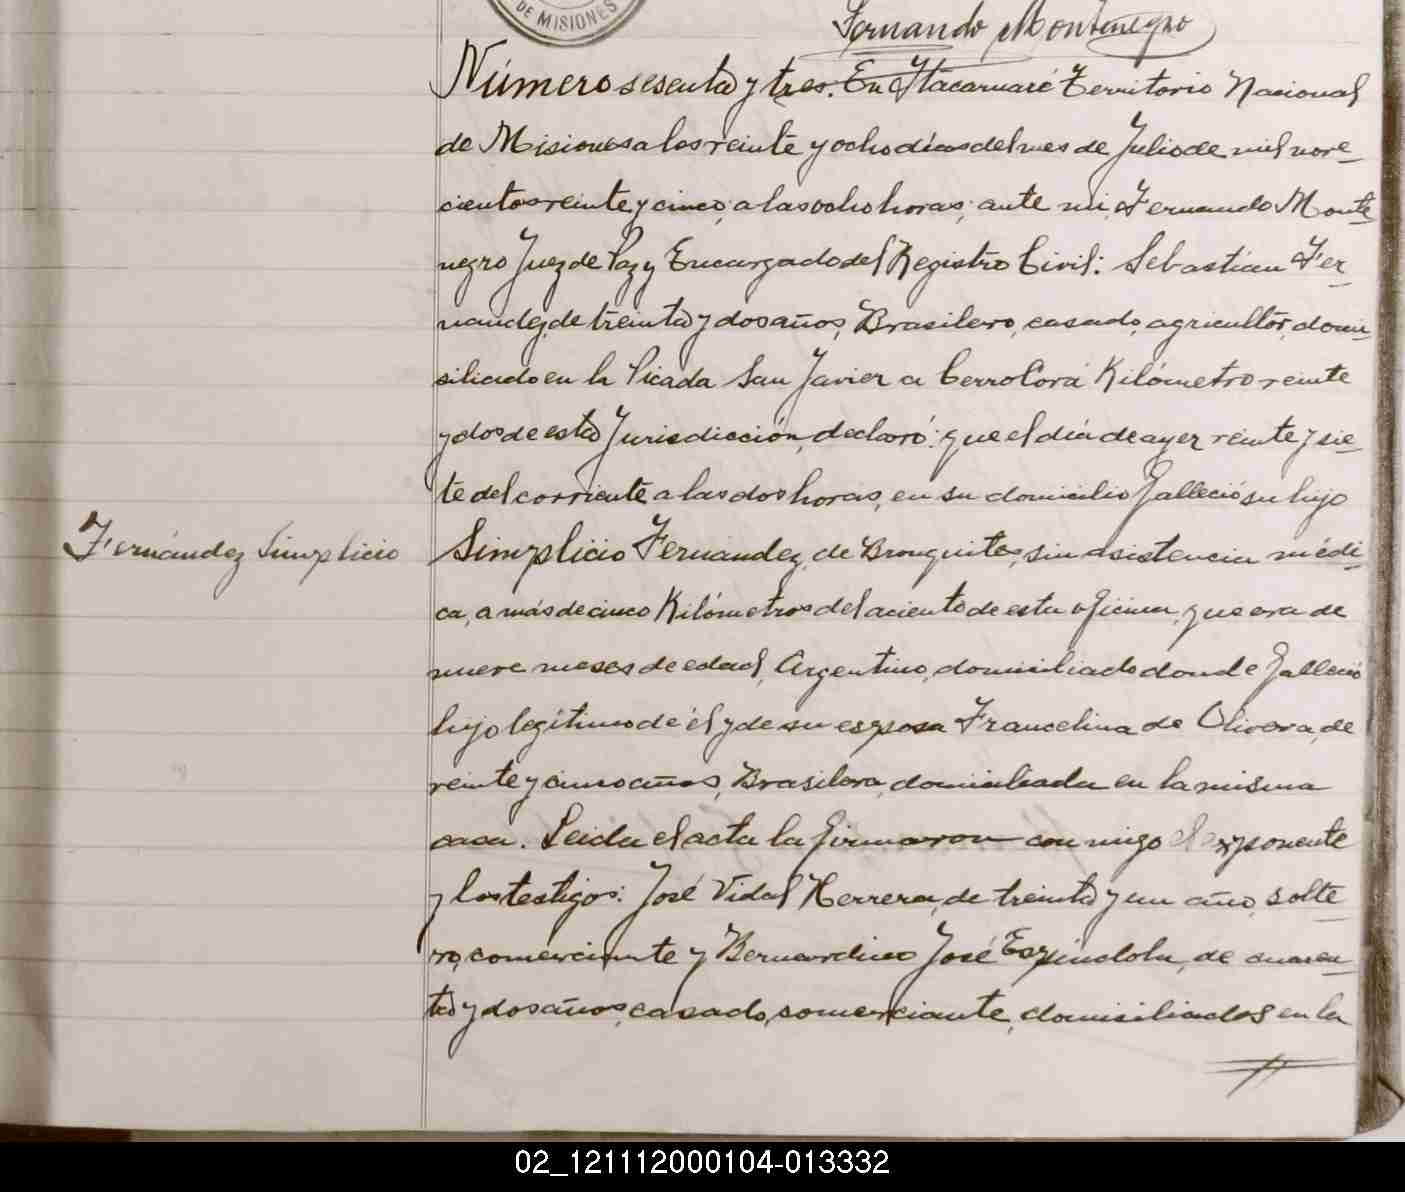 DE MISIONES
Fernando Montenegro
Número sesenta y tres. En Itacaruaré Territorio Nacional
de Misiones a los veinte y ocho días del mes de Julio de mil nove-
cientos veinte y cinco, a las ocho horas, ante mi, Fernando Monte-
negro Juez de Paz y Encargado del Registro Civil: Sebastian Fer-
nandez, de treinta y dos años, Brasilero, casado, agricultor, domi-
siliado en la Picada San Javier a Cerro Corá Kilómetro veinte
y dos de esta Jurisdicción, declaró: que el día de ayer veinte y sie-
te del corriente a las dos horas, en su domicilio falleció su hijo
Fernández Simplicio
Simplicio Fernández, de Bronquites, sin asistencia médi-
ca, a más de cinco Kilómetros del aciento de esta oficina, que era de
nueve meses de edad, Argentino, domiciliado donde falleció
hijo legítimo de él y de su esposa Francelina de Olivera, de
veinte y cinco años, Brasilera, domiciliada en la misma
casa. Leida el acta la firmaron con migo el exponente
y los testigos: José Vidal Herrera, de treinta y un año, solte-
ro, comerciante y Bernardino José Espindola, de cuaren-
ta y dos años, casado, comerciante, domisiliados en la
02_121112000104-013332